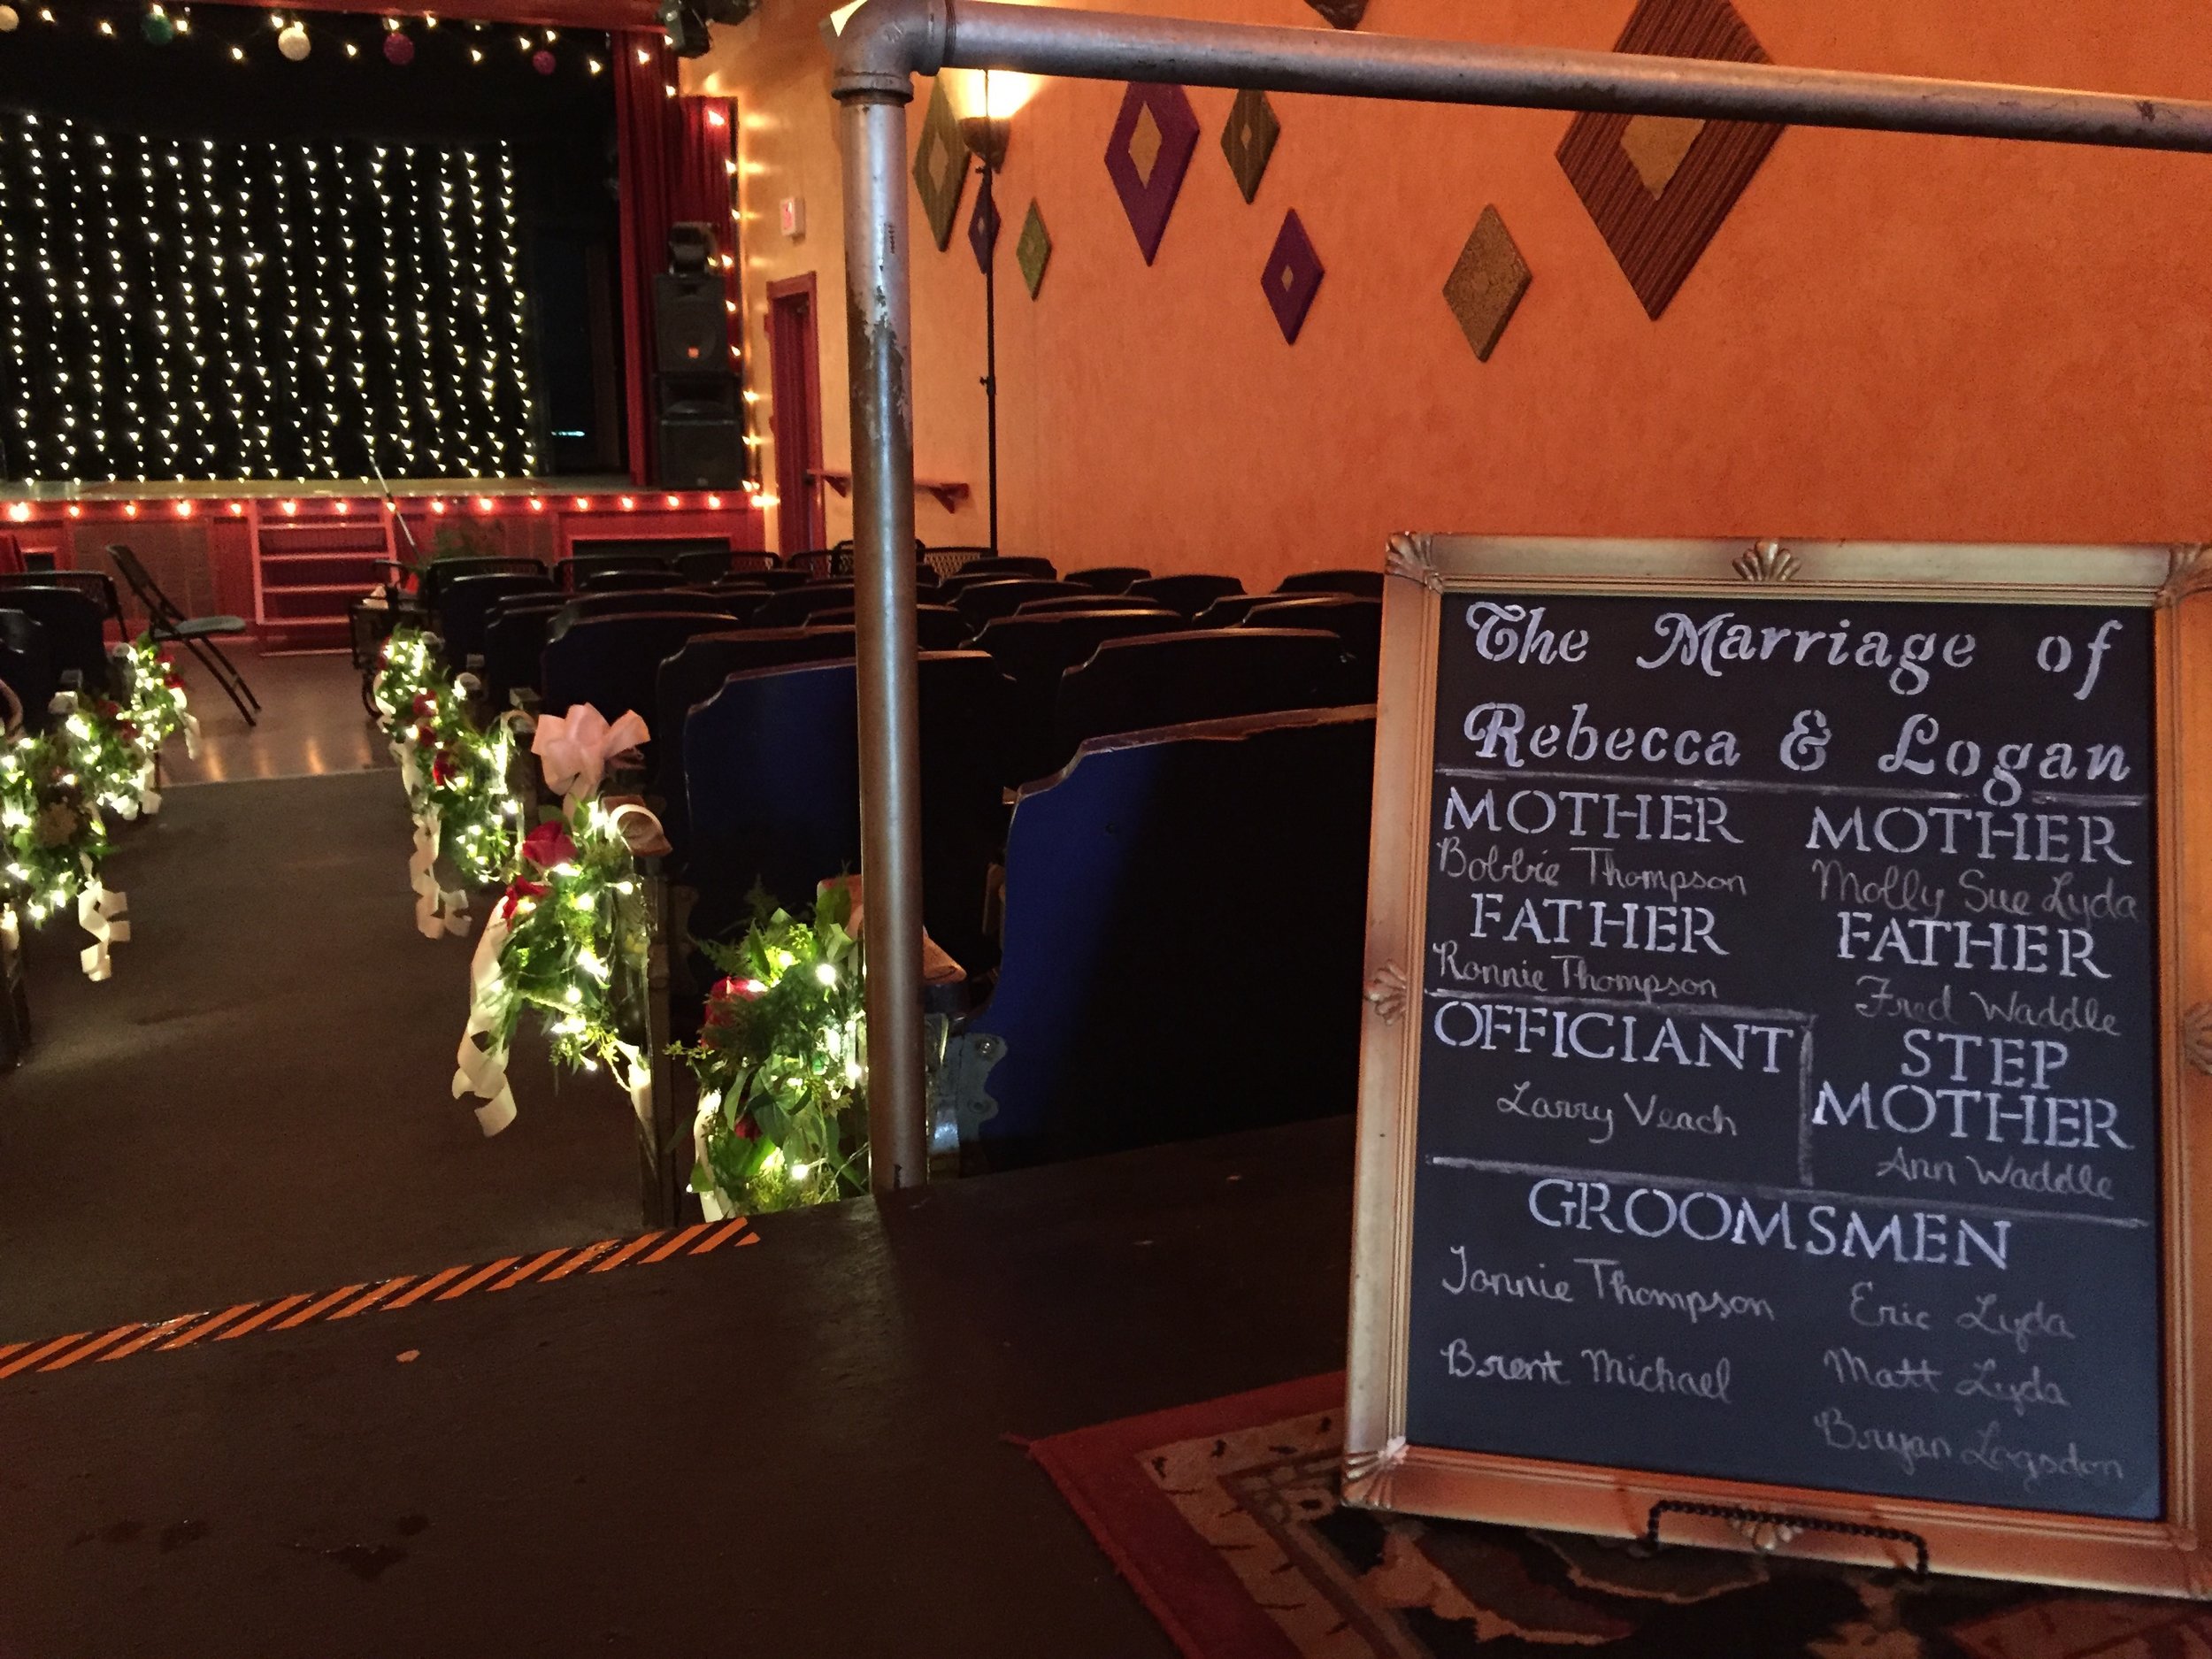 The Marriage of
Rebecca & Logan
MOTHER MOTHER
Bobbie Thompson Molly Sue Lyda
FATHER FATHER
Ronnie Thompson Fred Waddle
OFFICIANT
Larry Veach
STEP
MOTHER
Ann Waddle
GROOMSMEN
Jonnie Thompson Eric Lyda
Brent Michael Matt Lyda
Bryan Logsdon